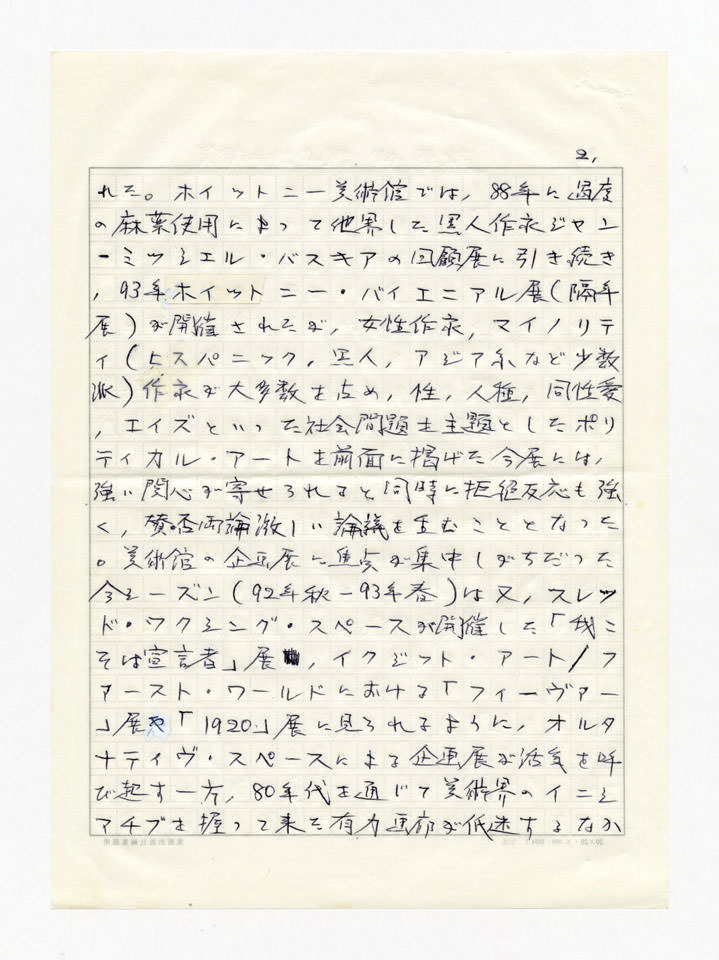 2,
れた。ホイットニー美術館では,88年に過度
の麻薬使用によって他界した黒人作家ジャン
ーミッシェル・バスキアの回顧展に引き続き
,93年ホイットニー・バイエニアル展(隔年
展)が開催されたが,女性作家,マイノリテ
ィ(ヒスパニック,黒人,アジア系など少数
派)作家が大多数を占め,性,人種,同性愛
,エイズといった社会問題を主題としたポリ
ティカル・アートを前面に掲げた今展には,
強い関心が寄せられると同時に拒絶反応も強
く,賛否両論激しい論議を生むこととなった
。美術館の企画展に焦点が集中しがちだった
今シーズン(92年秋-93年春)は又,スレッ
ド・ワクシング・スペースが開催した「我こ
そは宣言者」展,イグジット・アート/フ
ァースト・ワールドにおける「フィーヴァー
」展や「1920」展に見られるように,オルタ
ナティヴ・スペースによる企画展が活気を呼
び起す一方,80年代を通じて美術界のイニシ
アチブを握って来た有力画廊が低迷するなか
20×20